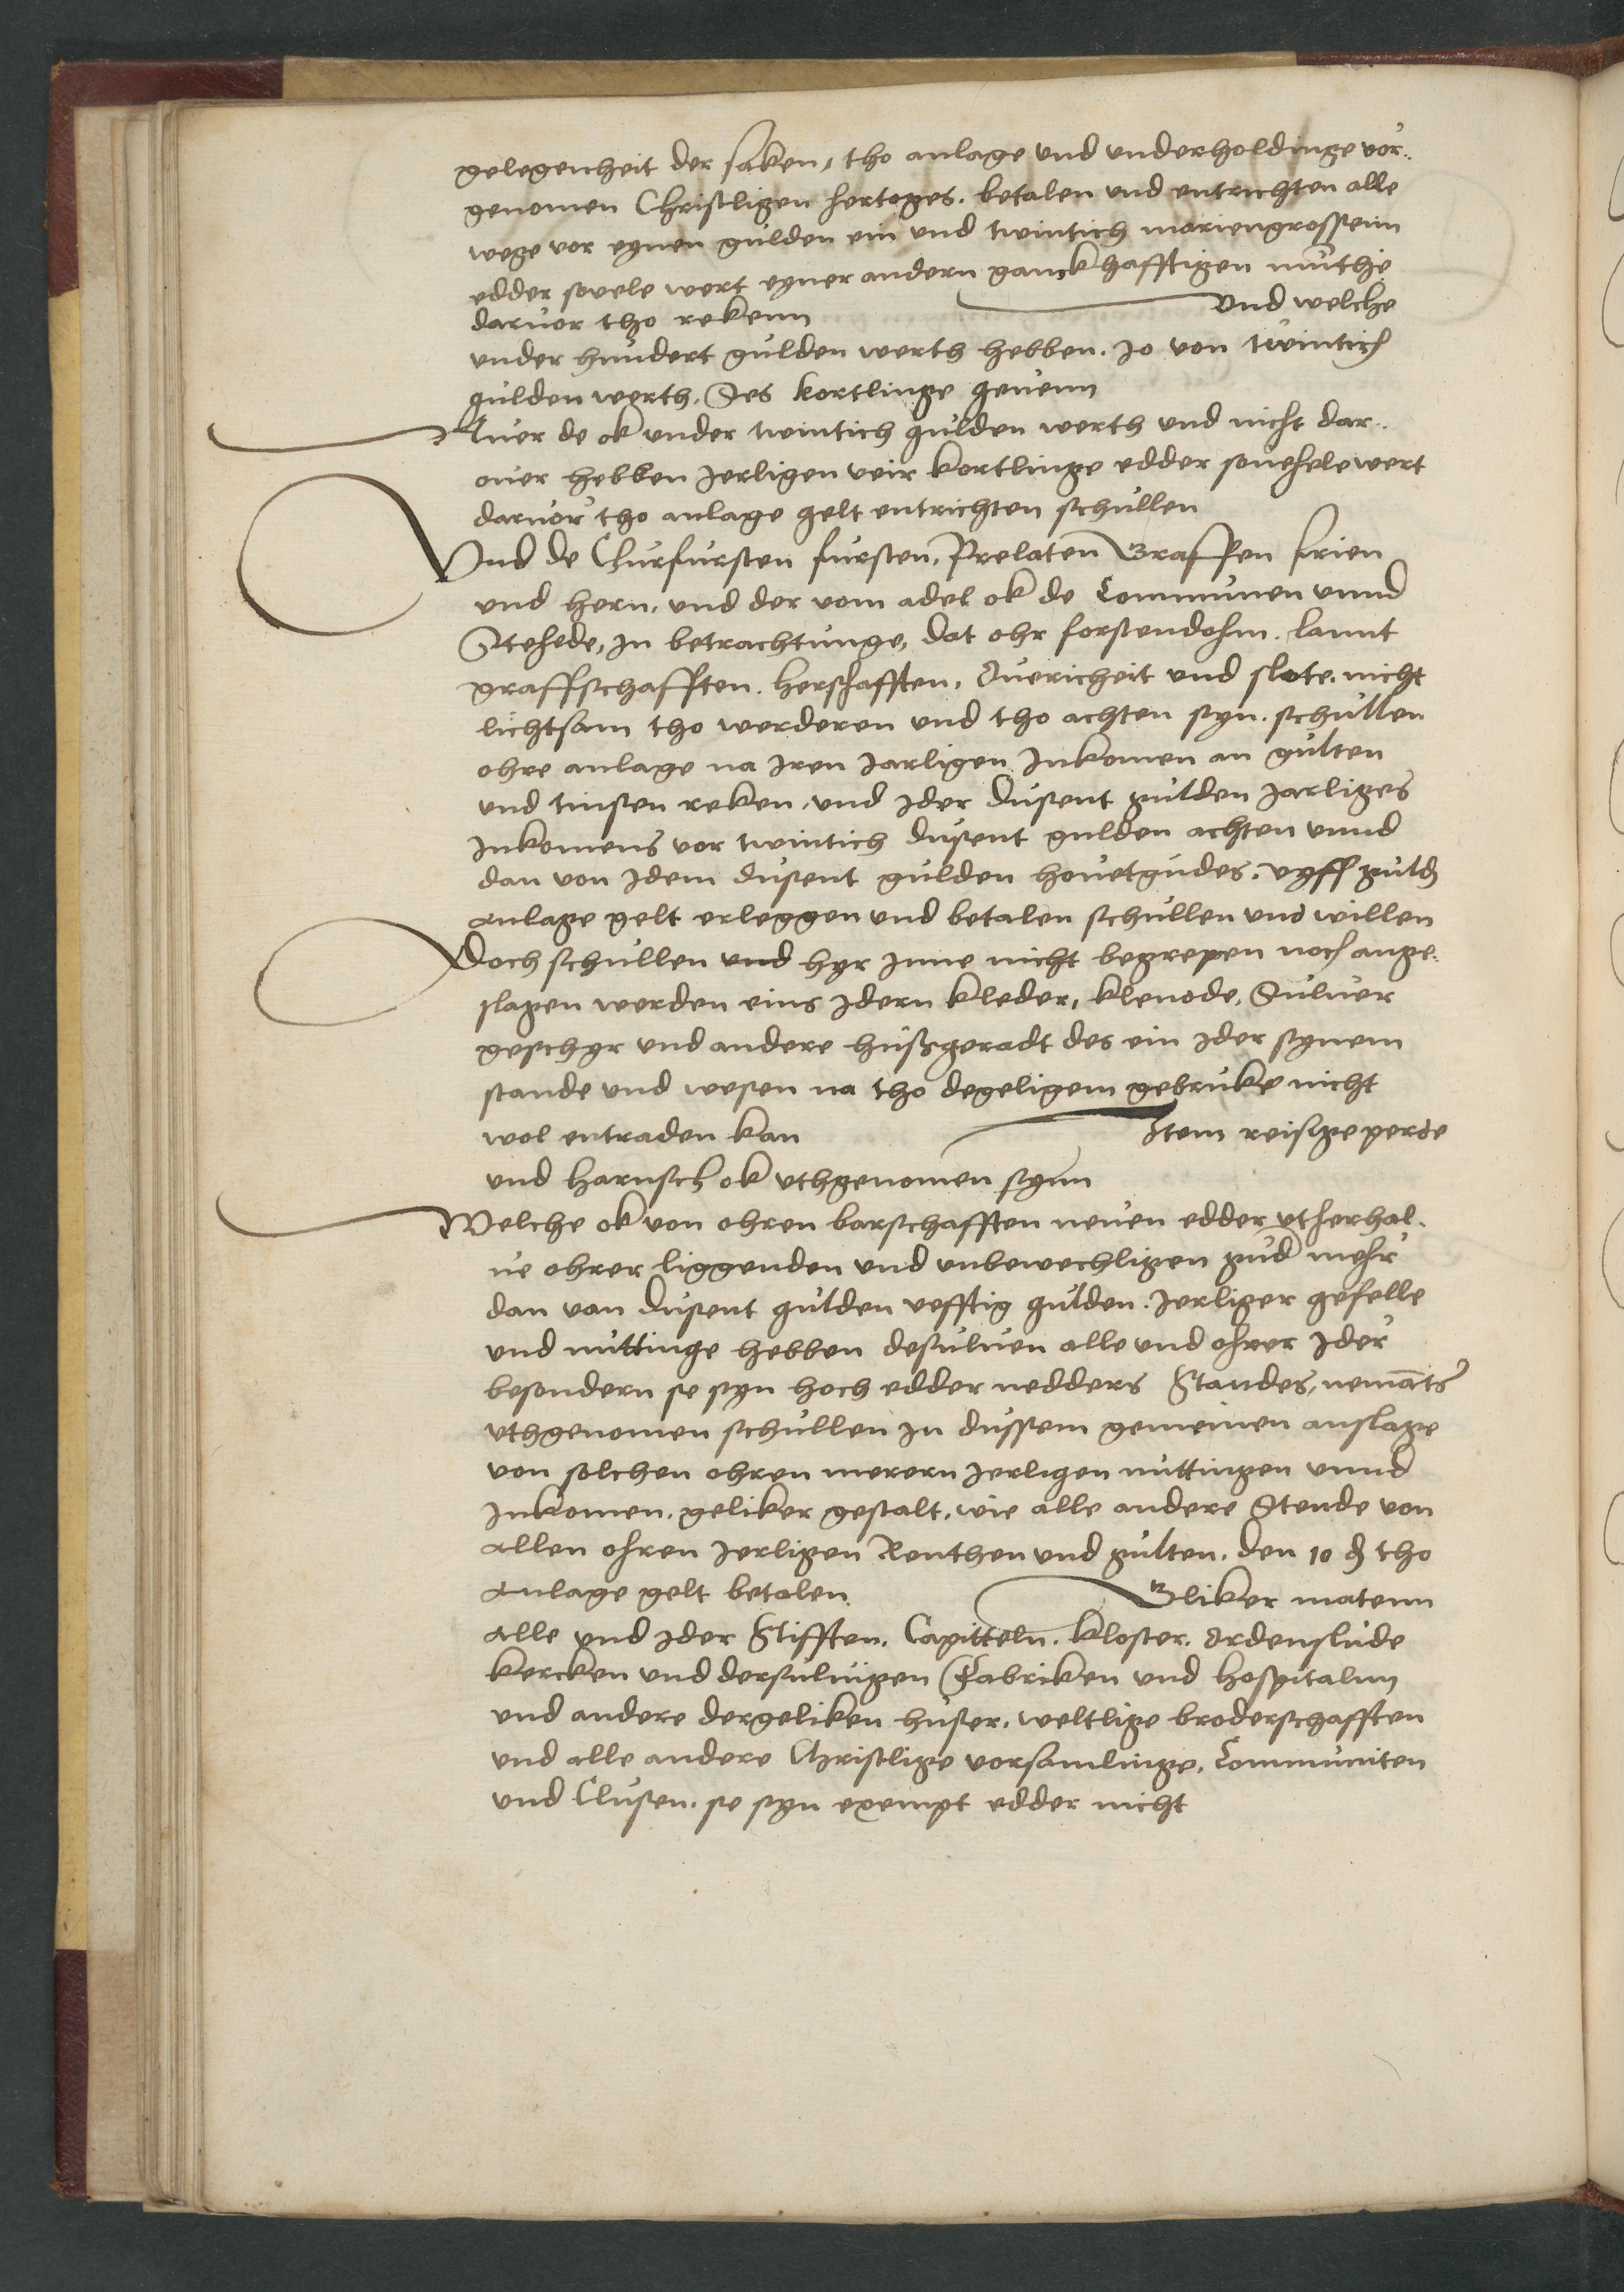 gelegenheit der saken, tho anlage und underholdinge vor..
genomen Christligen hertoges. betalen und entrichten alle
wege vor eynen gulden ein und twintich mariengrossenn
edder sovele wert eyner andern ganckhafftigen munthe
darvor tho rekenn und welche
under hundert gulden werth hebben. jo von twintich
gulden werth. Ses kortlinge gevenn
Aver de ok under twintich gulden werth und nicht dar..
over hebben Jerligen veir kortlinge edder sovehele wert
darvor tho anlage gelt entrichten schullen
Und de Churfursten fursten, Prelaten Graffen frien
und hern, und der vom adel ok de Communen unnd
Stehede, in betrachtunge, dat ohr forstendohm. lannt
graffschafften. herschafften, Overicheit und slote. nicht
lichtsam tho werderen und tho achten syn. schullen
ohre anlage na Iren Jarligen Inkomen an gulten
und tinsen reken, und Ider dusent gulden Jarliges
Inkomens vor twintich dusent gulden achten unnd
dan von Idem dusent gulden hovetgudes. vyff guld
anlage gelt erleggen und betalen schullen und willen
Doch schullen und hyr Inne nicht begrepen noch ange.
slagen werden eins Idern kleder, klenode, Sulver
geschyr und andere hußgeradt des ein Ider synem
stande und wesen na tho degeligem gebruke nicht
wol entraden kan Item reisige perde
und harnsch ok uthgenomen synn
Welche ok von ohren barschafften neven edder utherhal.
ve ohrer liggenden und unbewechligen gud mehr
dan van dusent gulden vefftig gulden. Jerliger gefelle
und nuttinge hebben desulven alle und ohrer Ider
besondern se syn hoch edder nedders Standes, nemats
uthgenomen schullen in dussem gemeinen anslage
von solchen ohren merern Jerligen nuttingen unnd
Inkomen. geliker gestalt, wie alle andere Stende von
allen ohren Jerligen Renthen und gulten. den 10 ₰ tho
anlage gelt betalen. Gliker matenn
alle und Ider Stifften. Capitteln. kloster. Ordenslude
kercken und dersulvigen Fabriken und hospitalnn
und andere dergeliken huser. weltlige broderschafften
und alle andere Christlige vorsamlinge. Communiten
und Clusen. se syn exempt edder nicht